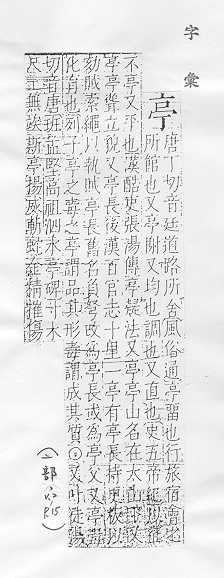 字彙
亭
唐丁切音廷道路所舍風俗通亭畱也行旅宿會之
所館也又亭榭又均也調也又直也史五帝紀
不亭又平也漢酷吏張湯傳亭疑法又亭亭山名在太山
亭亭聳立貌又亭長後漢百官志十里一亭有亭長持更板以
劾賊索繩以執賊亭長舊名負弩改爲亭長或為亭父又亭毒
化育也列子亭之毒之亭謂品其形毒謂成其質○又叶徒陽
切音唐班孟堅高祖泗水亭碑寸木
尺土無竢斯亭揚威
(亠部 P.15)